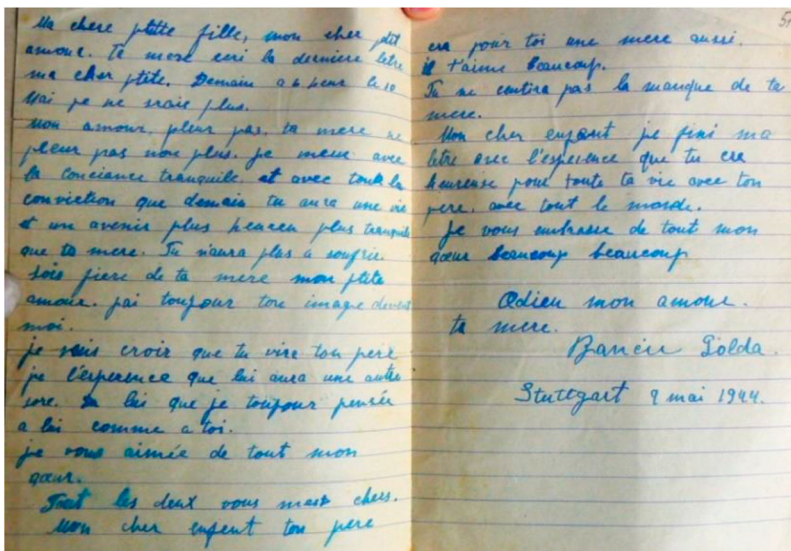 Ma chere ptite fille, mon cher ptit
amour. Ta mere ecri la derniere letre
ma cher ptite. Demain a 6 heur le 10
Mai je ne sraie plus.
Mon amour, pleur pas, ta mere ne
pleur pas non plus. je meur avec
la conciance tranquile et avec tout la
conviction que demain tu aura une vie
et un avenir plus heureu plus tranquile
que ta mere. Tu n'aura plus a soufrir.
Sois fiere de ta mere mon ptite
amour. j'ai toujour tone image devent
moi.
je vais croir que tu vira ton pere
je l'esperence que lui aura une autre
sore. Di lui que je toujour pensée
a lui comme a toi.
je vous aimée de tout mon
cœur.
Tout les deux vous maite chers.
Mon cher enfent ton pere
5
era pour toi une mere aussi.
il t'aime beaucoup.
Tu ne sentira pas la manque de ta
mere.
Mon cher enfant je fini ma
letre avec l'esperence que tu era
heureuse pour toute ta vie avec ton
pere, avec tout le monde.
je vous embrasse de tout mon
cœur beaucoup beaucoup
Adieu mon amour.
ta mere.
Bancic Golda.
Stuttgart 9 mai 1944.